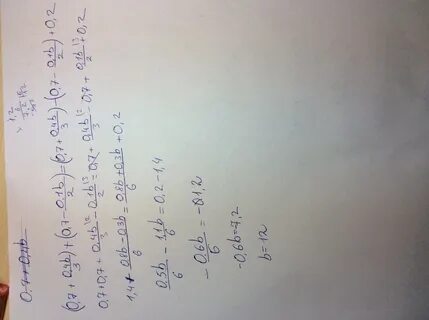 0,7+0,4b
(0,7+0,4b/3)+(0,7-0,1b/2)=(0,7+0,4b/3)-(0,7-0,1b/2)+0,2
0,7+0,7+0,4b/3-0,1b/2=0,7+0,4b/3-0,7+0,1b/2+0,2
1,4+0,8b-0,3b/6=0,8b+0,3b/6+0,2
0,5b/6-1,1b/6=0,2-1,4
-0,6b/6=-1,2
-0,6b=7,2
b=12